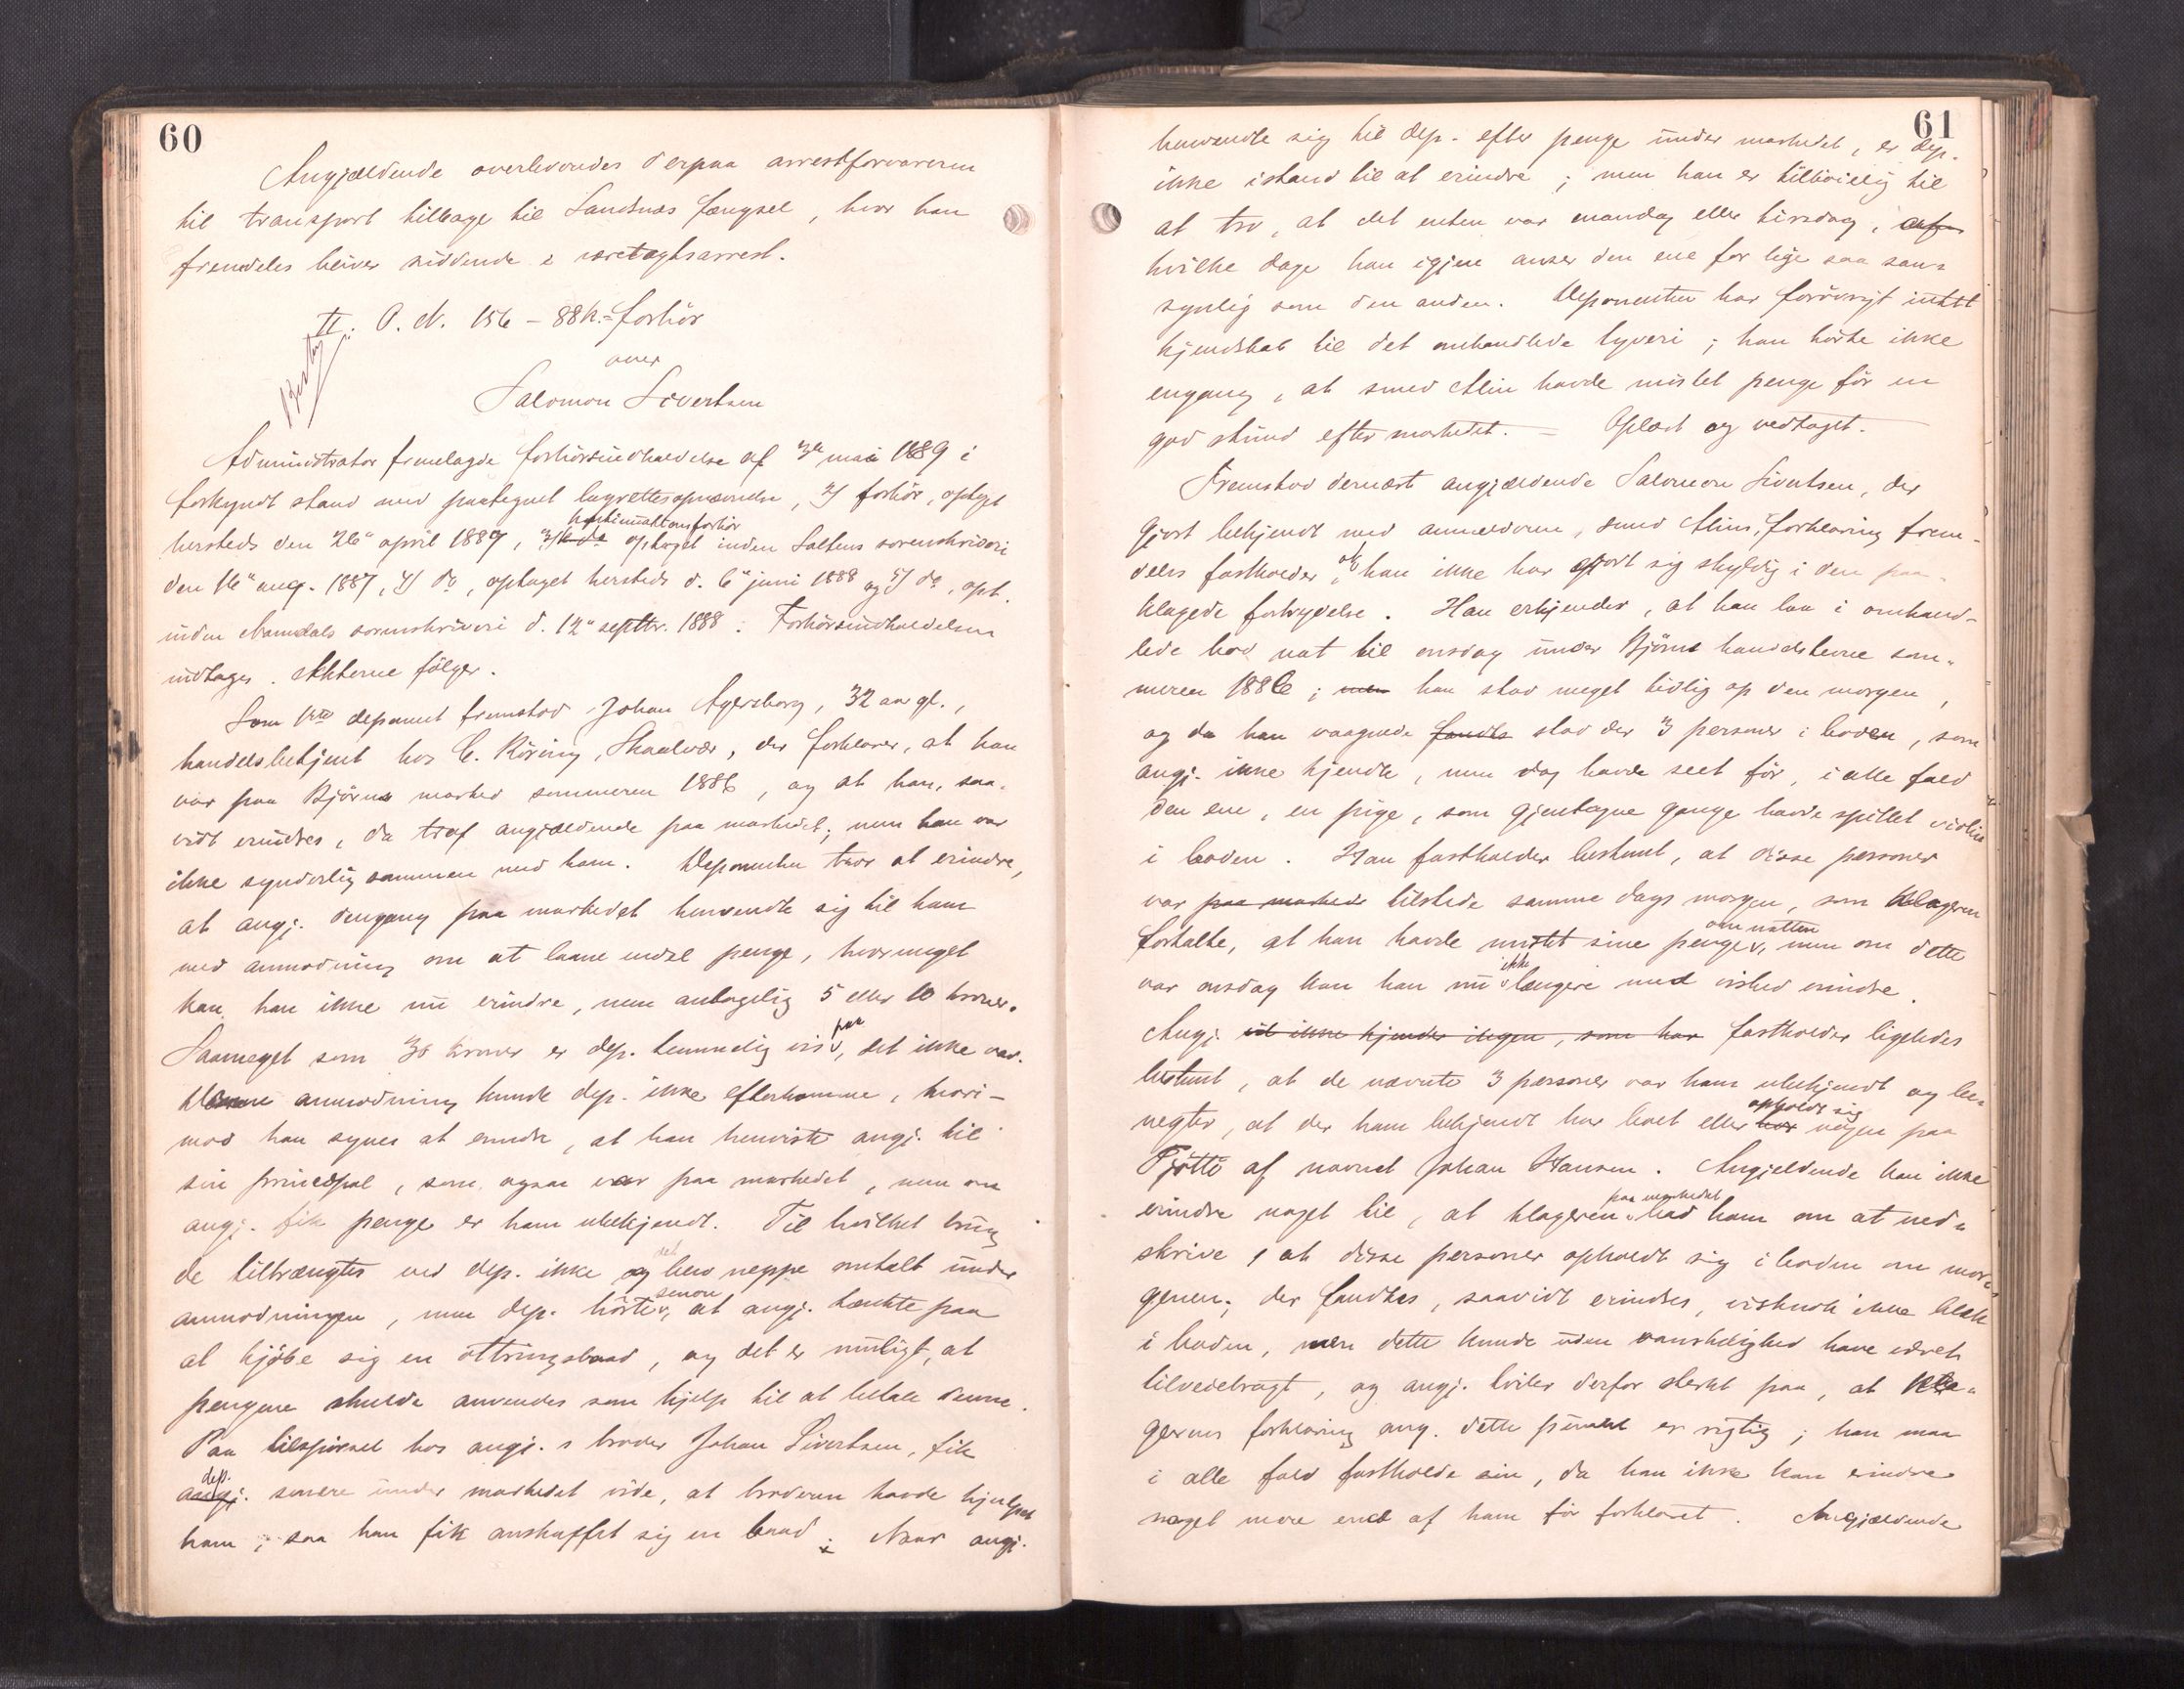 60
Angjældende overleveredes derpaa arrestforvareren
til transport tilbage til Sandnæs fængsel, hvor han
fremdeles bliver siddende i varetægtsarrest.
II. P. N. 156 - 88 k. = forhör
over
Salomon Sivertsen
Administrator fremlagde forhörsindkaldelse af 3de mai 1889 i
forkyndt stand med paategnet lagrettesopnævnelse, 2/ forhör, optaget
hersteds den 26" april 1887, 3/ kontinuationsforhör optaget inden Saltens sorenskriveri
den 16" aug. 1887, 4/ do, optaget hersteds d. 6" juni 1888 og 5/ do, opt.
inden Namdals sorenskriveri d. 12" septbr. 1888. Forhörsindkaldelsen
indtages. Akterne fölger.
Som 1ste deponent fremstod Johan Agersborg, 32 aar gl.,
handelsbetjent hos C. Röring, Skaalvær, der forklarer, at han
var paa Bjørns marked sommeren 1886, og at han, saa-
vidt erindres, da traf angjældende paa markedet; men han var
ikke synderlig sammen med ham. Deponenten tror at erindre,
at angj. dengang paa markedet henvendte sig til ham
med anmodning om at laane endel penge, hvormeget
kan han ikke nu erindre, men antagelig 5 eller 10 kroner.
Saameget som 30 kroner er dep. temmelig vis paa, det ikke var.
Denne anmodning kunde dep. ikke efterkomme, hvori-
mod han synes at erindre, at han henviste angj. til
sin principal, som ogsaa var paa markedet, men om
angj. fik penge er ham ubekjendt. Til hvilket brug
de tiltrængtes ved dep. ikke og det blev neppe omtalt under
anmodningen, men dep. hörte senere, at angj. tænkte paa
at kjöbe sig en ottringsbaad, og det er muligt, at
pengene skulde anvendes som hjelp til at betale denne.
Paa tilspörsel hos angj.s broder Johan Sivertsen, fik
dep. angj. senere under markedet vide, at broderen havde hjulpet
ham, saa han fik anskaffet sig en baad. Naar angj.
61
henvendte sig til dep. efter penge under markedet, er dep.
ikke istand til at erindre; men han er tilböielig til
at tro, at det enten var mandag eller tirsdag, af
hvilke dage han igjen anser den ene for lige saa sand-
synlig som den anden. Deponenten har forövrigt intet
kjendskab til det omhandlede tyveri; han hörte ikke
engang, at smed Alin havde mistet penge för en
god stund efter markedet. — Oplæst og vedtaget.
Fremstod dernæst angjældende Salomon Sivertsen, der
gjort bekjendt med anmelderens, smed Alins, forklaring frem-
deles fastholder, at han ikke har gjort sig skyldig i den paa-
klagede forbrydelse. Han erkjender, at han laa i omhand-
lede bod nat til onsdag under Bjørns handelstevne som-
meren 1886; men han stod meget tidlig op den morgen,
og da han vaagnede fandtes stod der 3 personer i boden, som
angj. ikke kjendte, men dog havde seet för, i alle fald
den ene, en pige, som gjentagne gange havde spillet violin
i boden. Han fastholder bestemt, at disse personer
var paa markede tilstede samme dags morgen, som klageren
fortalte, at han havde mistet sine penge om natten, men om dette
var onsdag kan han nu ikke længere med vished erindre.
Angj. vil ikke kjender ingen, som har fastholder ligeledes
bestemt, at de nævnte 3 personer var ham ubekjendt og be-
negter, at der ham bekjendt har levet eller har opholdt sig nogen paa
Tjøttö af navnet Johan Hansen. Angjeldende kan ikke
erindre noget til, at klageren paa markedet bad ham om at ned-
skrive, at disse personer opholdt sig i boden om mor-
genen; der fandtes, saavidt erindres, vistnok ikke blæk
i boden, men dette kunde uden vanskelighed have været
tilvejebragt, og angj. tviler derfor sterkt paa, at kla-
gerens forklaring ang. dette punkt er rigtig; han maa
i alle fald fastholde sin, da han ikke kan erindre
noget mere end af ham för forklaret. Angjældende